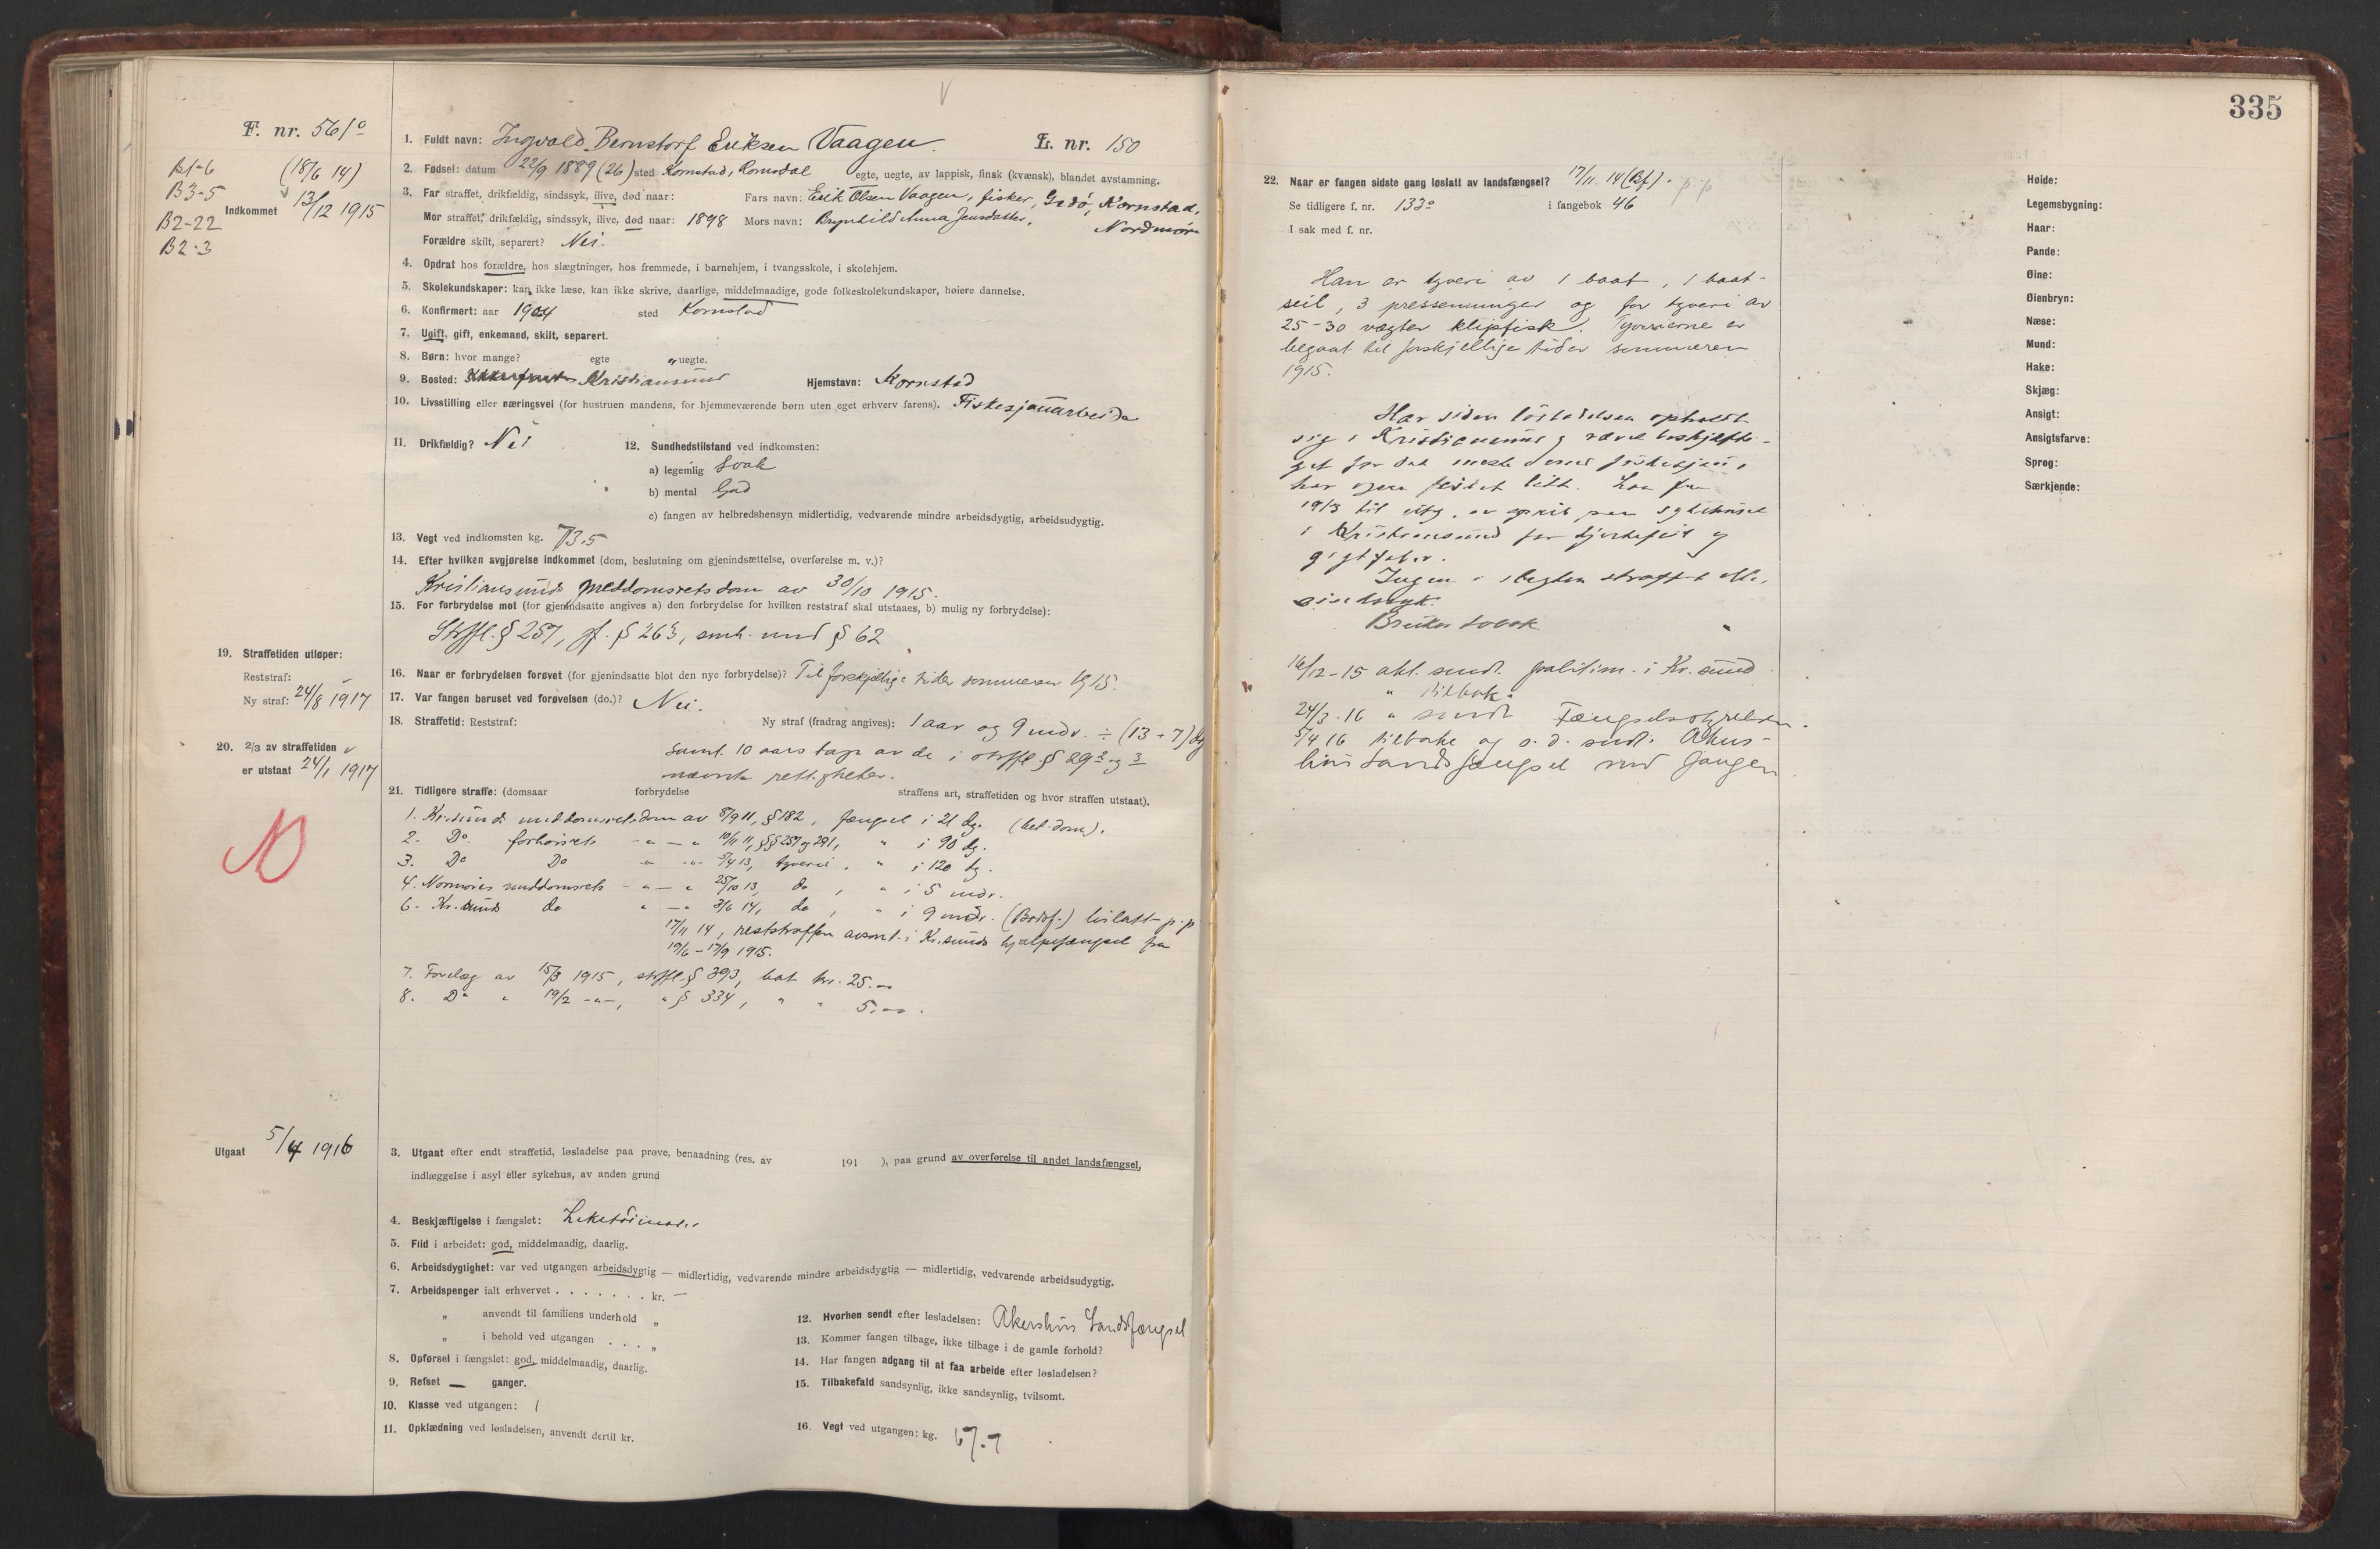 335
F. nr. 561º
B1-6
(18/6 14)
B3-5
Indkommet 13/12 1915
B2-22
B2-3
1. Fuldt navn: Ingvald Bernstorf Eriksen Vaagen. L. nr. 150
2. Fødsel: datum 22/9 1889 (26) sted Kornstad, Romsdal egte, uegte, av lappisk, finsk (kvænsk), blandet avstamning.
3. Far straffet, drikfældig, sindssyk, ilive, død naar: Fars navn: Erik Olsen Vaagen, fisker, Kornstad,
Mor straffet, drikfældig, sindssyk, ilive, død naar: 1898 Mors navn: Brynhild Anna Jensdatter. Nordmøre
Forældre skilt, separert? Nei.
4. Opdrat hos forældre, hos slægtninger, hos fremmede, i barnehjem, i tvangsskole, i skolehjem.
5. Skolekundskaper: kan ikke læse, kan ikke skrive, daarlige, middelmaadige, gode folkeskolekundskaper, høiere dannelse.
6. Konfirmert: aar 1904 sted Kornstad
7. Ugift, gift, enkemand, skilt, separert.
8. Børn: hvor mange? egte uegte.
9. Bosted: Kristiansund Hjemstavn: Kornstad
10. Livsstilling eller næringsvei (for hustruen mandens, for hjemmeværende børn uten eget erhverv farens). Fiskesjauarbeide
11. Drikfældig? Nei 12. Sundhedstilstand ved indkomsten:
a) legemlig Svak
b) mental God
c) fangen av helbredshensyn midlertidig, vedvarende mindre arbeidsdygtig, arbeidsudygtig.
13. Vegt ved indkomsten kg. 73,5
14. Efter hvilken avgjørelse indkommet (dom, beslutning om gjenindsættelse, overførelse m. v.)?
Kristiansunds meddomsretsdom av 30/10 1915.
15. For forbrydelse mot (for gjenindsatte angives a) den forbrydelse for hvilken reststraf skal utstaaes, b) mulig ny forbrydelse):
Strffl. § 257, jf. § 263, smh. med § 62
16. Naar er forbrydelsen forøvet (for gjenindsatte blot den nye forbrydelse)? Til forskjellige tider sommeren 1915.
17. Var fangen beruset ved forøvelsen (do.)? Nei.
18. Straffetid: Reststraf: Ny straf (fradrag angives): 1 aar og 9 mdr. ÷ (13 + 7) dg
samt 10 aars tap av de i strffl § 29 2 og 3
nævnte rettigheter.
19. Straffetiden utløper:
Reststraf:
Ny straf: 24/8 1917
20. 2/3 av straffetiden
er utstaat 24/1 1917
21. Tidligere straffe: (domsaar forbrydelse straffens art, straffetiden og hvor straffen utstaat).
1. Kr.sunds meddomsretsdom av 8/9 11, § 182, fængsel i 21 dg. (bet. dom).
2. Do. forhørsrets - " - " 10/11 11, §§ 257 og 291, " i 90 dg.
3. Do Do " - " - 5/4 13, tyveri, " i 120 dg.
4. Normøres meddomsrets - " - " 25/10 13, do, " i 5 mdr.
6. Kr.sunds do " - " 3/6 14, do, " i 9 mdr. (Bodsf.) løslatt p. p
17/11 14, reststraffen avsont i Kr.sunds hjælpefængsel fra
19/6 - 17/9 1915.
7. Forelæg av 15/3 1915, strffl. § 393, bot kr. 25.-
8. Do " 19/2 - " -, " § 334, " " 5,00.
Utgaat 5/4 1916
3. Utgaat efter endt straffetid, løsladelse paa prøve, benaadning (res. av 191 ), paa grund av overførelse til andet landsfængsel,
indlæggelse i asyl eller sykehus, av anden grund
4. Beskjæftigelse i fængslet: Leketøimaker
5. Flid i arbeidet: god, middelmaadig, daarlig.
6. Arbeidsdygtighet: var ved utgangen arbeidsdygtig — midlertidig, vedvarende mindre arbeidsdygtig — midlertidig, vedvarende arbeidsudygtig.
7. Arbeidspenger ialt erhvervet . . . . . . . kr. —
„ anvendt til familiens underhold „
„ i behold ved utgangen . . . „
8. Opførsel i fængslet: god, middelmaadig, daarlig.
9. Refset — ganger.
10. Klasse ved utgangen: 1
11. Opklædning ved løsladelsen, anvendt dertil kr.
12. Hvorhen sendt efter løsladelsen: Akershus Landsfængsel
13. Kommer fangen tilbage, ikke tilbage i de gamle forhold?
14. Har fangen adgang til at faa arbeide efter løsladelsen?
15. Tilbakefald sandsynlig, ikke sandsynlig, tvilsomt.
16. Vegt ved utgangen: kg. 67.7
22. Naar er fangen sidste gang løslatt av landsfængsel? 17/11 14 (Bf). p.p
Se tidligere f. nr. 133º i fangebok 46
I sak med f. nr.
Han er tyveri av 1 baat, 1 baat-
seil, 3 pressenninger og for tyveri av
25-30 vægter klipfisk. Tyverierne er
begaat til forskjellige tider sommeren
1915.
Har siden løsladelsen opholdt
sig i Kristiansund og været beskjæfti-
get for det meste med fiskesjau,
har ogsaa fisket litt. Laa fra
19/3 til utg. av april paa sykehuset
i Kristiansund for hjertefeil og
gigtfeber.
Ingen i slegten straffet eller
sindssyk.
Bruker tobak
16/12-15 akt. sendt politim. i Kr.sund
" tilbak.
24/3.16 " sendt Fængselsstyrelsen.
5/4 16 tilbake og s. d. sendt Akers-
hus Landsfængsel med fangen
Høide:
Legemsbygning:
Haar:
Pande:
Øine:
Øienbryn:
Næse:
Mund:
Hake:
Skjæg:
Ansigt:
Ansigtsfarve:
Sprog:
Særkjende: